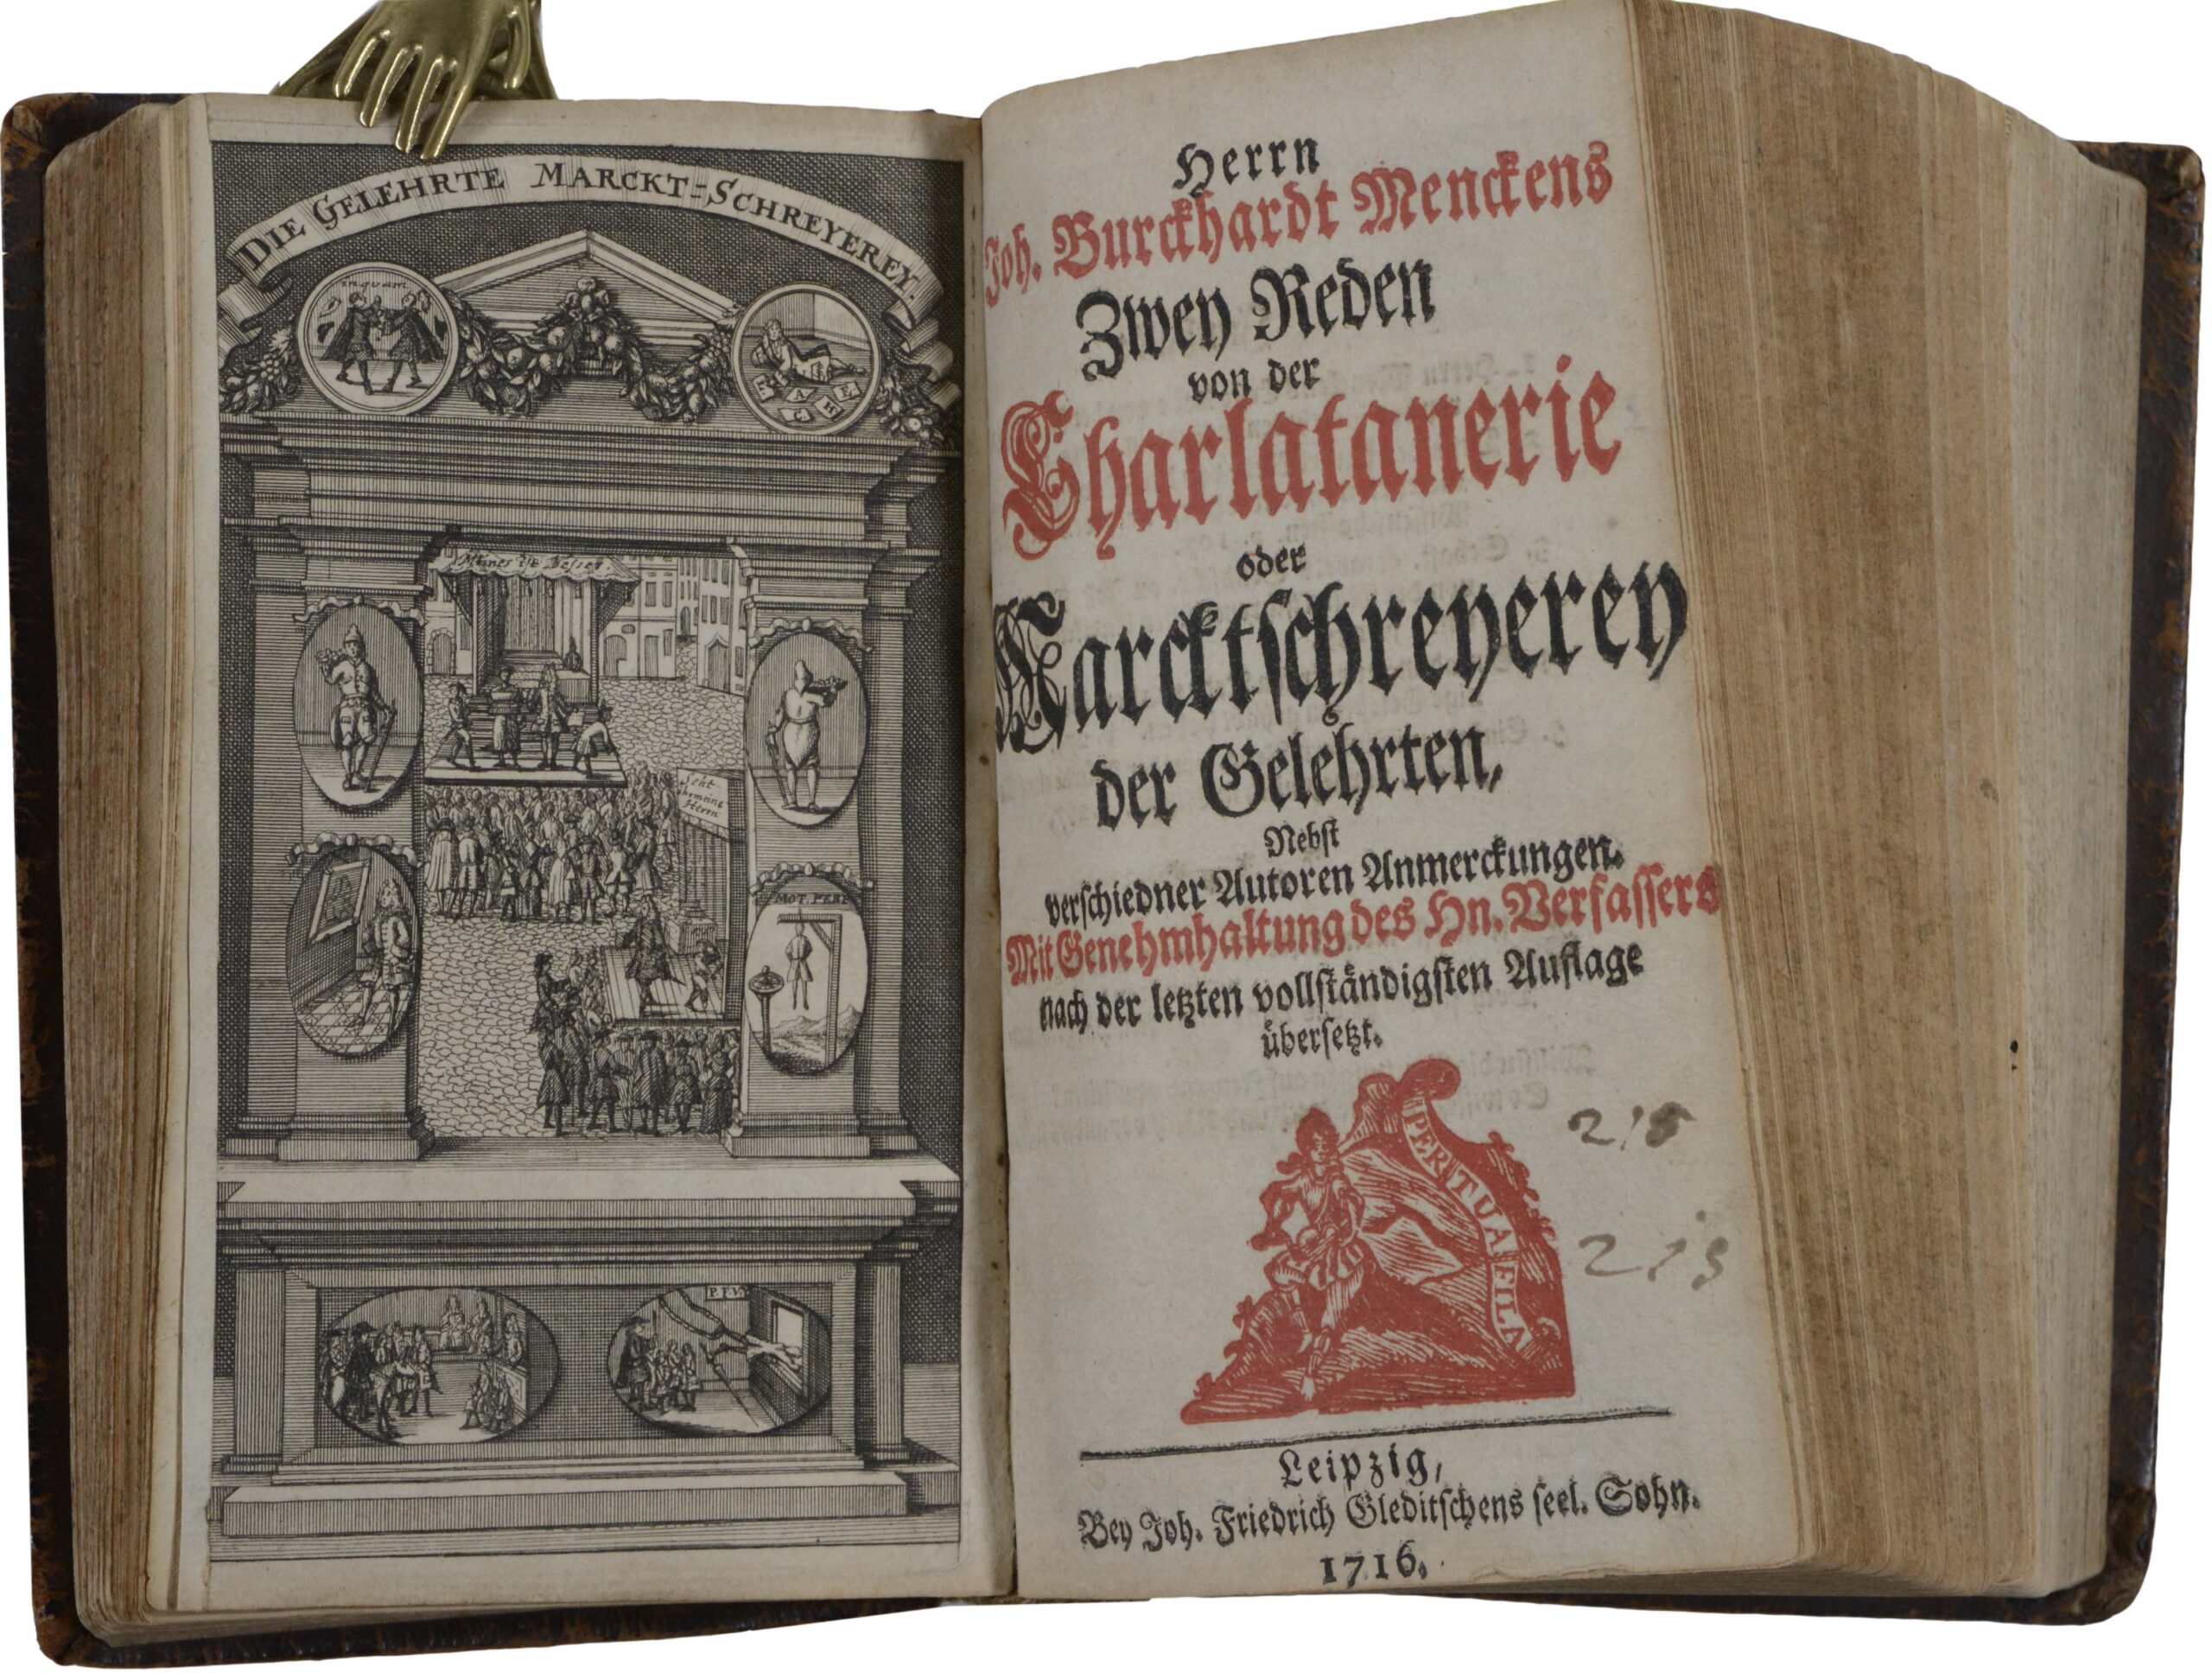 DIE GELEHRTE MARCKT=SCHREYEREY.
inquam
E A C H E
Meines ist besser.
Seht
meine
Herrn
MOT. PERP
P.P.V.
Herrn
Joh. Burckhardt Menckens
Zwey Reden
von der
Charlatanerie
oder
Marcktschreyerey
der Gelehrten,
Nebst
verschiedner Autoren Anmerckungen.
Mit Genehmhaltung des Hn. Verfassers
nach der letzten vollständigsten Auflage
übersetzt.
PERITURA FILA
215
213
Leipzig,
Bey Joh. Friedrich Gleditschens seel. Sohn.
1716.